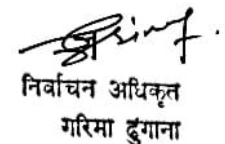 निर्वाचन अधिकृत
गरिमा ढुंगाना